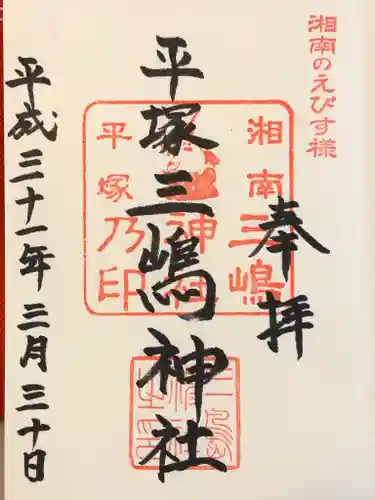 湘南のえびす様
奉拝
湘南
三嶋
神社
平塚
乃印
平塚三嶋神社
平成三十一年三月三十日